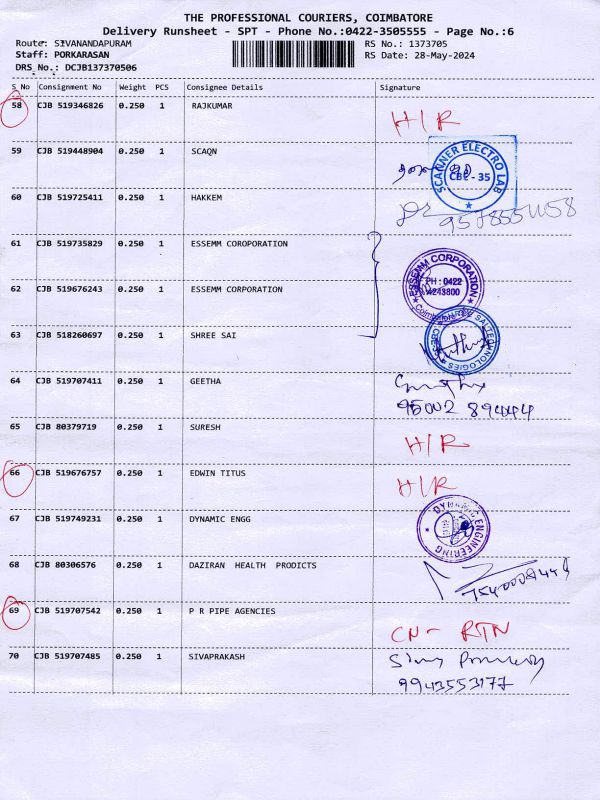 THE PROFESSIONAL COURIERS, COIMBATORE
Delivery Runsheet - SPT - Phone No.:0422-3505555 - Page No.:6
Route: SIVANANDAPURAM RS No.: 1373705
Staff: PORKARASAN RS Date: 28-May-2024
DRS No.: DCJB137370506
S No Consignment No Weight PCS Consignee Details Signature
58 CJB 519346826 0.250 1 RAJKUMAR H/R
59 CJB 519448904 0.250 1 SCAQN SCANNER ELECTRO LAB CBE - 35
60 CJB 519725411 0.250 1 HAKKEM
61 CJB 519735829 0.250 1 ESSEMM COROPORATION
62 CJB 519676243 0.250 1 ESSEMM CORPORATION ESSEMM CORPORATION PH : 0422 4243800 Coimbatore
63 CJB 518260697 0.250 1 SHREE SAI
64 CJB 519707411 0.250 1 GEETHA
95002 89444
65 CJB 80379719 0.250 1 SURESH H/R
66 CJB 519676757 0.250 1 EDWIN TITUS H/R
67 CJB 519749231 0.250 1 DYNAMIC ENGG DYNAMIC ENGINEERING
68 CJB 80306576 0.250 1 DAZIRAN HEALTH PRODICTS
69 CJB 519707542 0.250 1 P R PIPE AGENCIES CN- RTN
70 CJB 519707485 0.250 1 SIVAPRAKASH
9943553177